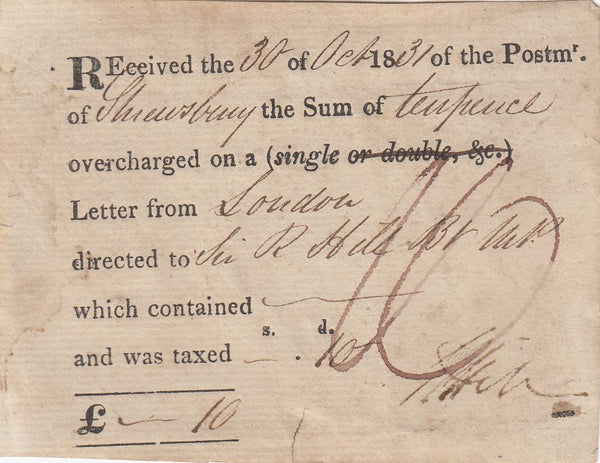 REceived the 30 of Oct 1831 of the Postmr.
of Shrewsbury the Sum of tenpence
overcharged on a (single or double, &c.)
Letter from London
directed to Sir R Hill Bt
which contained —
s. d.
and was taxed — . 10
10
R Hill
£ — 10